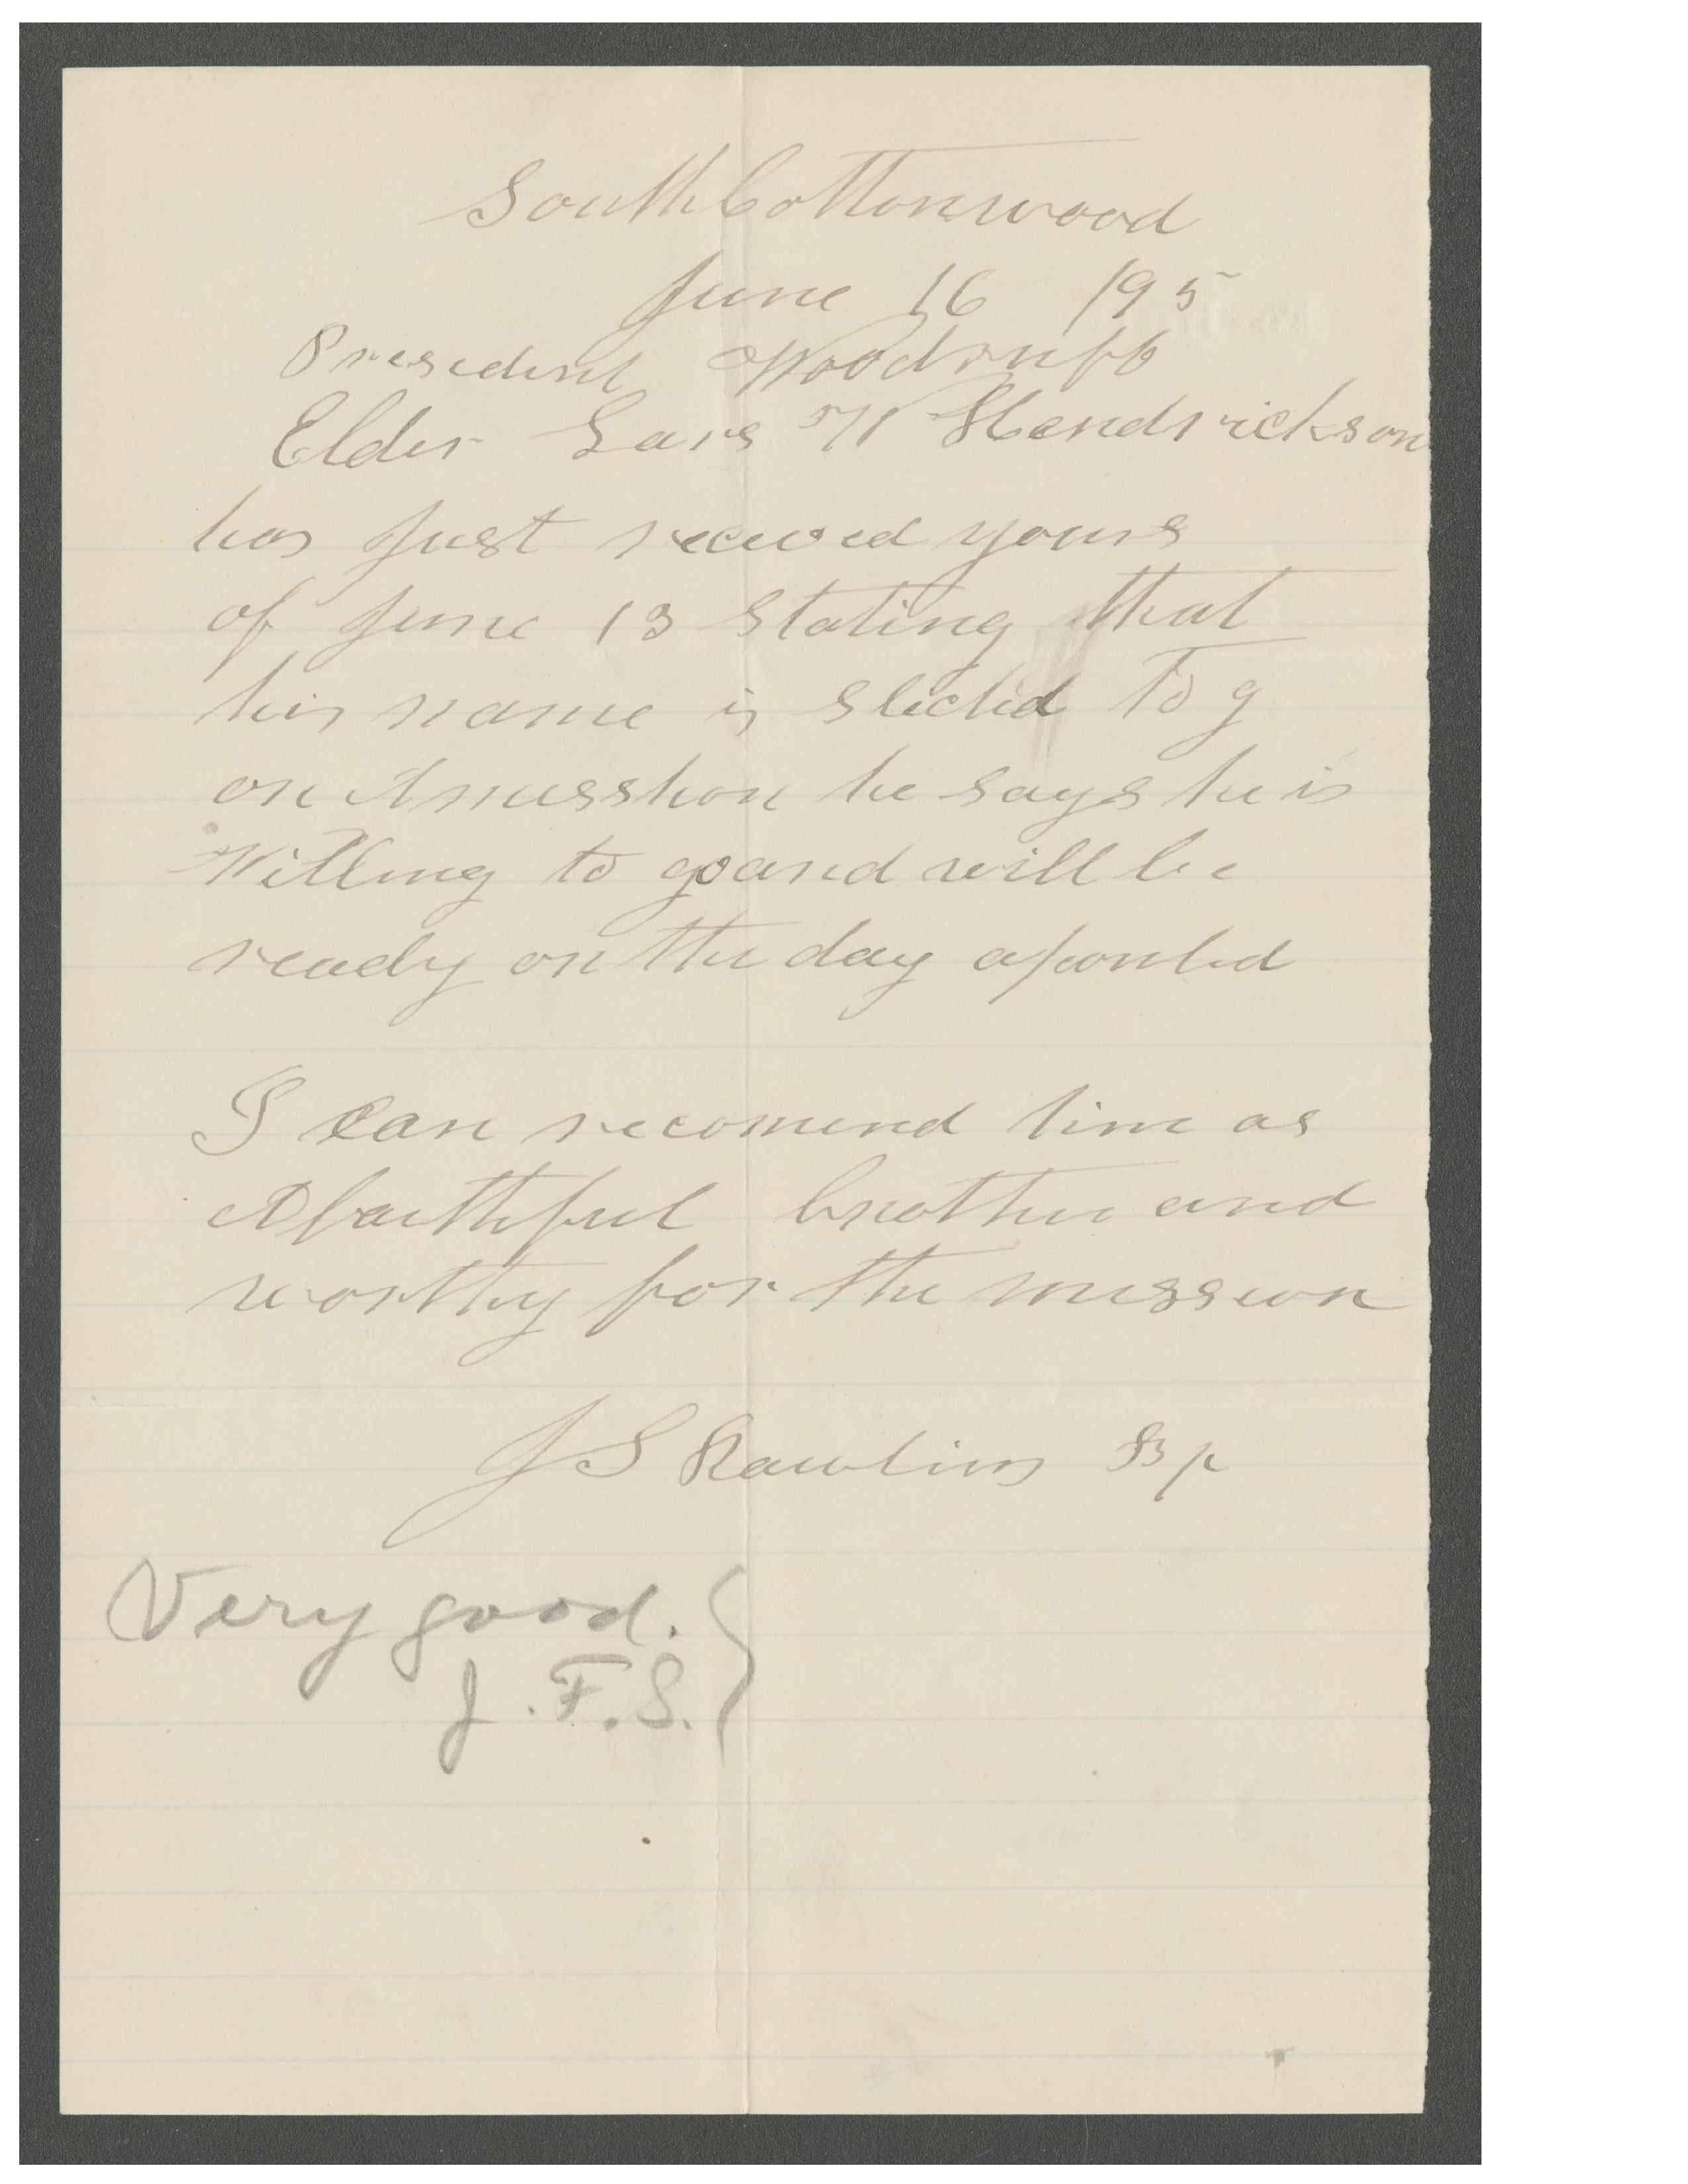 South Cottonwood
June 16 195
President Woodruff
Elder Lars W Hendrickson
has Just received yours
of June 13 Stating that
his name is Slected To g
on A misshon he says he is
Willing to go and will be
ready on the day aponted
I Can recomend him as
A faithful brother and
worthy for the mission
J S Rawlins Bp
Very good.
J. F. S.